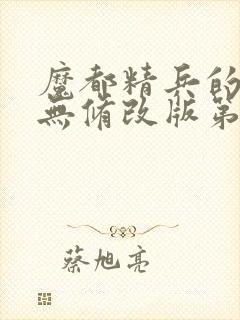 魔都精兵的
無修改版第
蔡旭亮